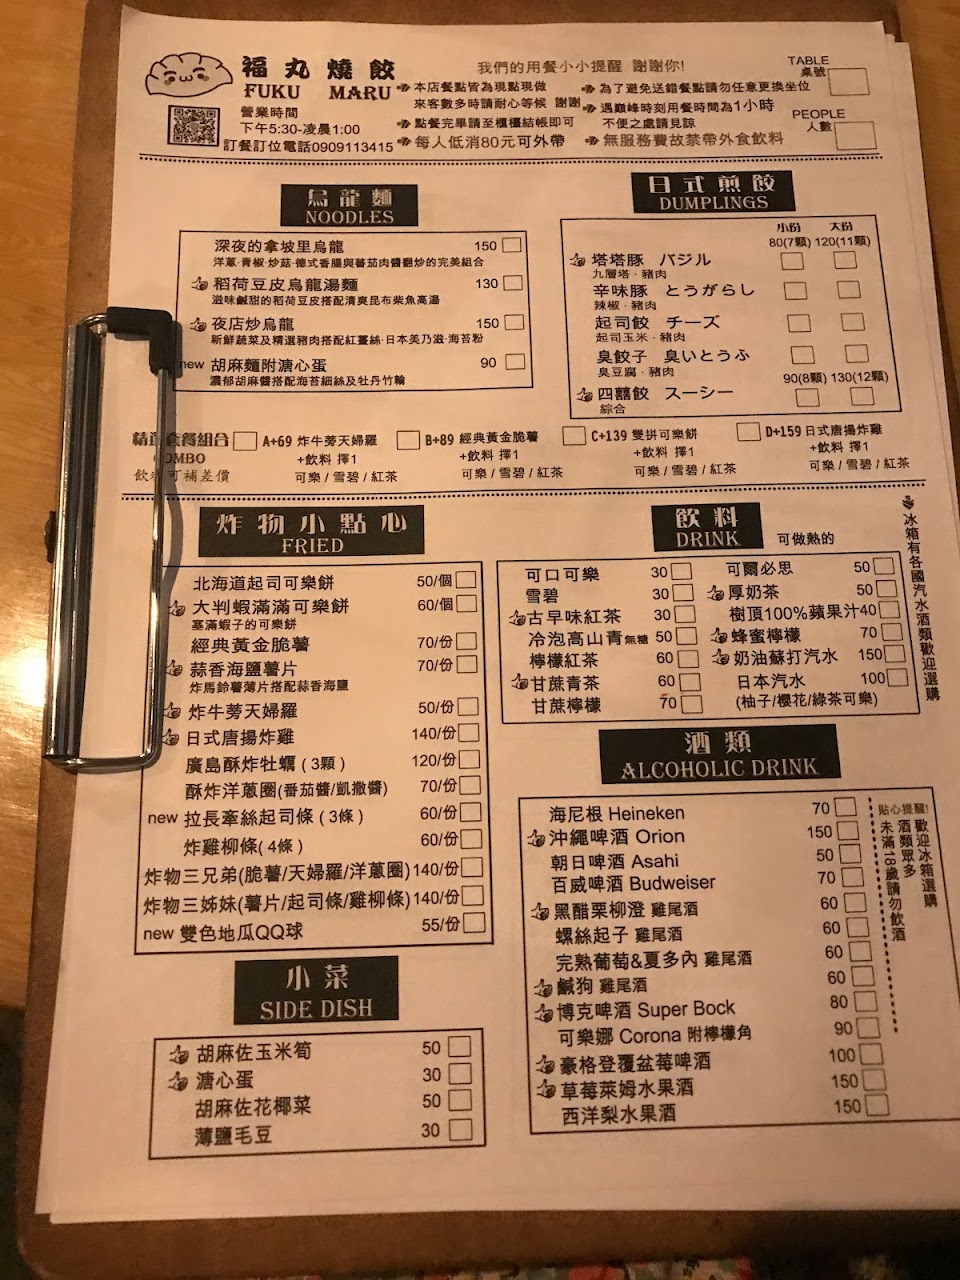 福丸燒餃
FUKU MARU
營業時間
下午5:30-凌晨1:00
訂餐訂位電話0909113415
我們的用餐小小提醒 謝謝你!
本店餐點皆為現點現做
來客數多時請耐心等候 謝謝
點餐完畢請至櫃檯結帳即可
每人低消80元可外帶
為了避免送錯餐點請勿任意更換坐位
遇巔峰時刻用餐時間為1小時
不便之處請見諒
無服務費故禁帶外食飲料
TABLE
桌號
PEOPLE
人數
烏龍麵
NOODLES
深夜的拿坡里烏龍 150
洋蔥·青椒·炒菇·德式香腸與蕃茄肉醬翻炒的完美組合
稻荷豆皮烏龍湯麵 130
滋味鹹甜的稻荷豆皮搭配清爽昆布柴魚高湯
夜店炒烏龍 150
新鮮蔬菜及精選豬肉搭配紅薑絲·日本美乃滋·海苔粉
new 胡麻麵附溏心蛋 90
濃郁胡麻醬搭配海苔細絲及牡丹竹輪
日式煎餃
DUMPLINGS
小份 大份
80(7顆) 120(11顆)
塔塔豚 バジル
九層塔·豬肉
辛味豚 とうがらし
辣椒·豬肉
起司餃 チーズ
起司玉米·豬肉
臭餃子 臭いとうふ
臭豆腐·豬肉
90(8顆) 130(12顆)
四囍餃 スーシー
綜合
套餐組合
飲料可補差價
A+69 炸牛蒡天婦羅
+飲料 擇1
可樂/雪碧/紅茶
B+89 經典黃金脆薯
+飲料 擇1
可樂/雪碧/紅茶
C+139 雙拼可樂餅
+飲料 擇1
可樂/雪碧/紅茶
D+159 日式唐揚炸雞
+飲料 擇1
可樂/雪碧/紅茶
炸物小點心
FRIED
北海道起司可樂餅 50/個
大判蝦滿滿可樂餅 60/個
塞滿蝦子的可樂餅
經典黃金脆薯 70/份
蒜香海鹽薯片 70/份
炸馬鈴薯薄片搭配蒜香海鹽
炸牛蒡天婦羅 50/份
日式唐揚炸雞 140/份
廣島酥炸牡蠣(3顆) 120/份
酥炸洋蔥圈(番茄醬/凱撒醬) 70/份
new 拉長牽絲起司條(3條) 60/份
炸雞柳條(4條) 60/份
炸物三兄弟(脆薯/天婦羅/洋蔥圈) 140/份
炸物三姊妹(薯片/起司條/雞柳條) 140/份
new 雙色地瓜QQ球 55/份
小菜
SIDE DISH
胡麻佐玉米筍 50
溏心蛋 30
胡麻佐花椰菜 50
薄鹽毛豆 30
飲料
DRINK
可做熱的
可口可樂 30
雪碧 30
古早味紅茶 30
冷泡高山青無糖 50
檸檬紅茶 60
甘蔗青茶 60
甘蔗檸檬 70
可爾必思 50
厚奶茶 50
樹頂100%蘋果汁 40
蜂蜜檸檬 70
奶油蘇打汽水 150
日本汽水 100
(柚子/櫻花/綠茶可樂)
冰箱有各國汽水酒類歡迎選購
酒類
ALCOHOLIC DRINK
海尼根 Heineken 70
沖繩啤酒 Orion 150
朝日啤酒 Asahi 50
百威啤酒 Budweiser 70
黑醋栗柳澄 雞尾酒 60
螺絲起子 雞尾酒 60
完熟葡萄&夏多內 雞尾酒 60
鹹狗 雞尾酒 60
博克啤酒 Super Bock 80
可樂娜 Corona 附檸檬角 90
豪格登覆盆莓啤酒 100
草莓萊姆水果酒 150
西洋梨水果酒 150
貼心提醒!
歡迎冰箱選購
酒類眾多
未滿18歲請勿飲酒